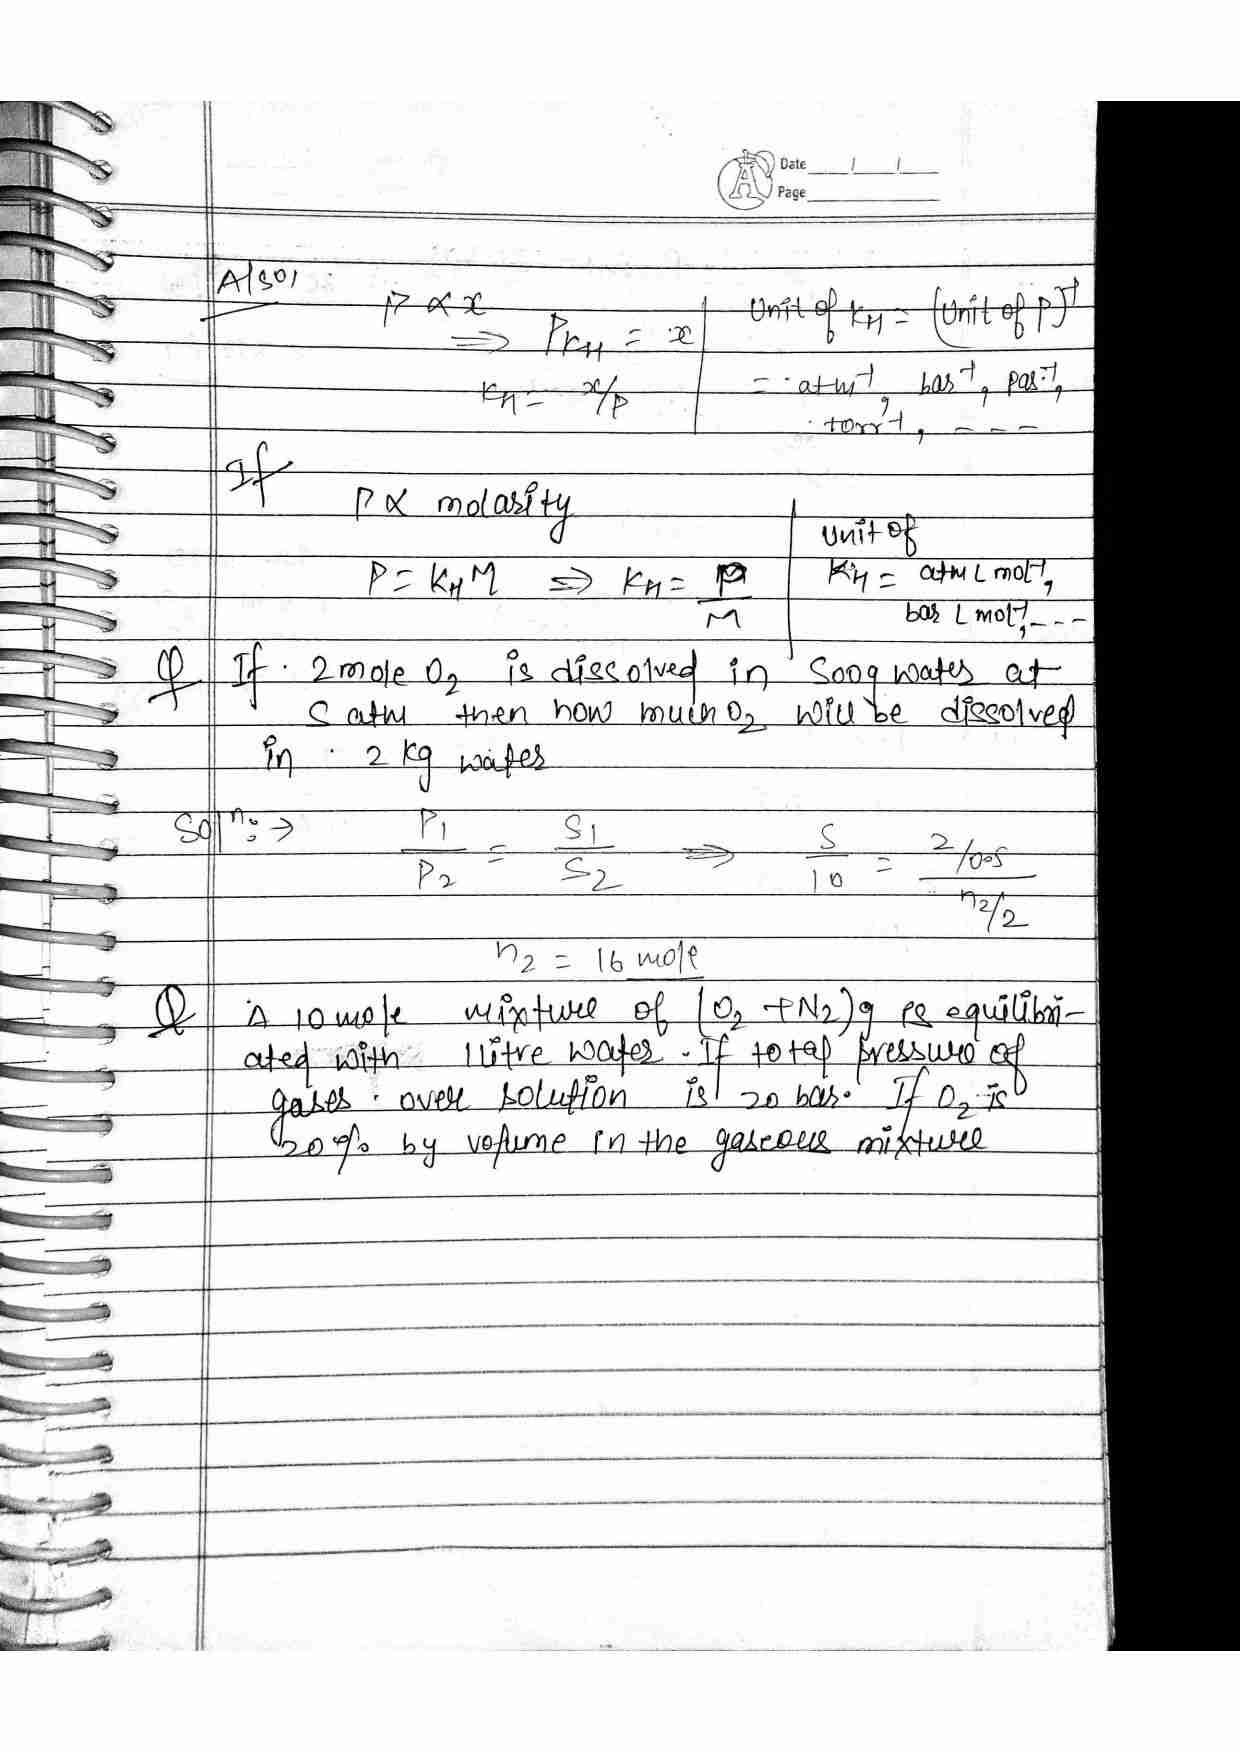 Date / /
Page
Also,
P ∝ x
⇒ PK_H = x
K_H = x/P
Unit of K_H = (Unit of P)⁻¹
= atm⁻¹, bar⁻¹, pas⁻¹,
torr⁻¹, - - -
If
P ∝ molarity
P = K_H M ⇒ K_H = P/M
Unit of
K_H = atm L mol⁻¹,
bar L mol⁻¹, - - -
Q If 2 mole O₂ is dissolved in 500g water at
5 atm then how much O₂ will be dissolved
in 2 kg water
Solⁿ: → P₁/P₂ = S₁/S₂ ⇒ 5/10 = (2/0.5)/(n₂/2)
n₂ = 16 mole
Q A 10 mole mixture of (O₂ + N₂)g is equilibri-
ated with 1 litre water. If total pressure of
gases over solution is 20 bar. If O₂ is
20% by volume in the gaseous mixture